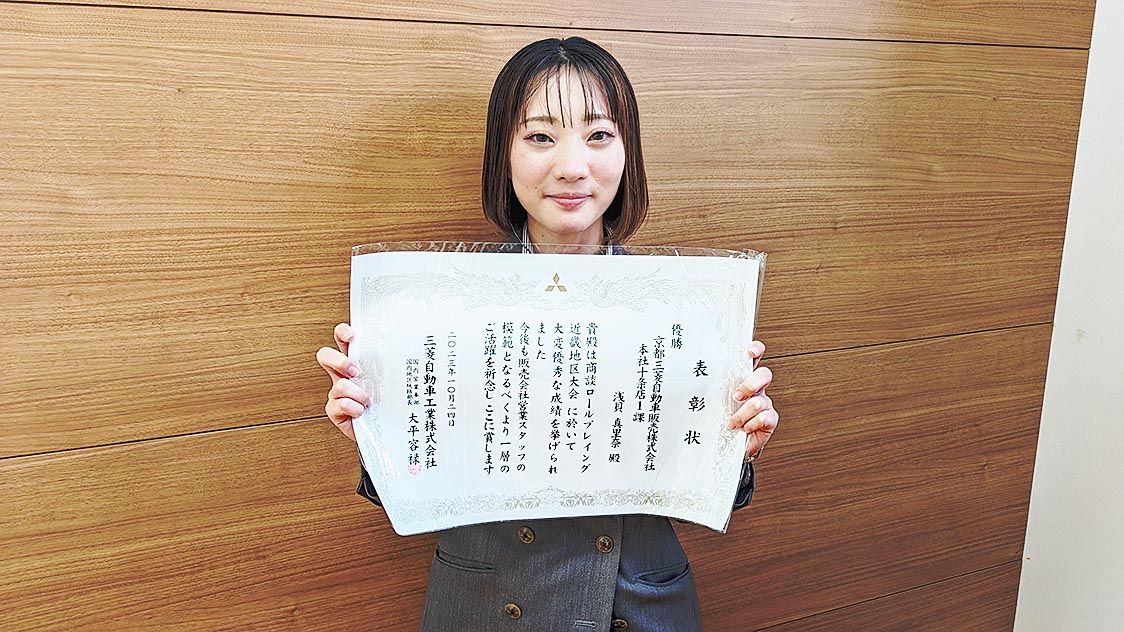 表彰状
優勝
京都三菱自動車販売株式会社
本社十条店1課
浅貝 真里奈 殿
貴殿は商談ロールプレイング
近畿地区大会 に於いて
大変優秀な成績を挙げられ
ました
今後も販売会社営業スタッフの
模範となるべくより一層の
ご活躍を祈念しここに賞します
二〇二三年一〇月二四日
三菱自動車工業株式会社
国内営業本部
大平 容禄